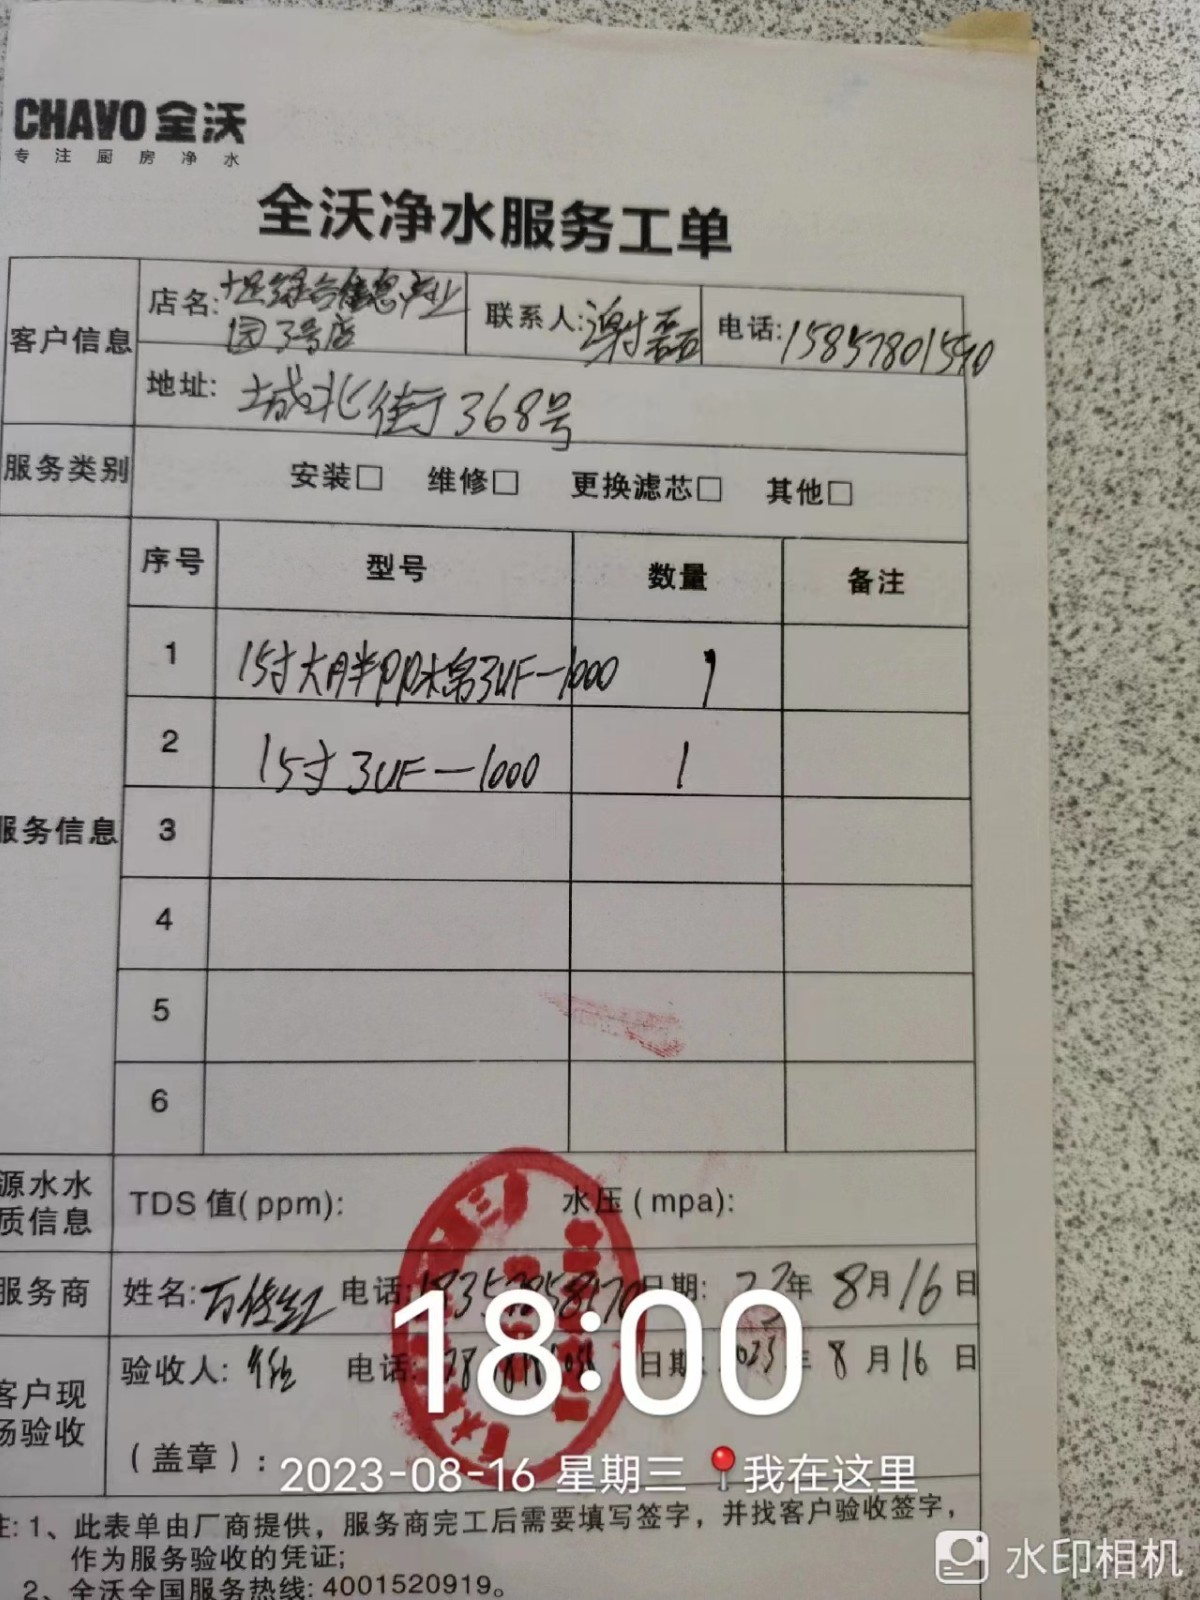 CHAVO 全沃
专注厨房净水
全沃净水服务工单
客户信息
店名: 综合信息产业
园3号店
联系人: 谢磊
电话: 15857801540
地址: 城北街368号
服务类别 安装□ 维修□ 更换滤芯□ 其他□
服务信息
序号 型号 数量 备注
1 15寸大胖PP棉3UF-1000 1
2 15寸3UF-1000 1
3
4
5
6
源水水
质信息
TDS 值(ppm): 水压(mpa):
服务商 姓名: 电话: 日期: 23年 8月16日
客户现
场验收
验收人: 电话: 日期: 2023年 8月16日
(盖章):
18:00
2023-08-16 星期三 我在这里
注: 1、此表单由厂商提供，服务商完工后需要填写签字，并找客户验收签字，
作为服务验收的凭证;
2、全沃全国服务热线: 4001520919。
水印相机